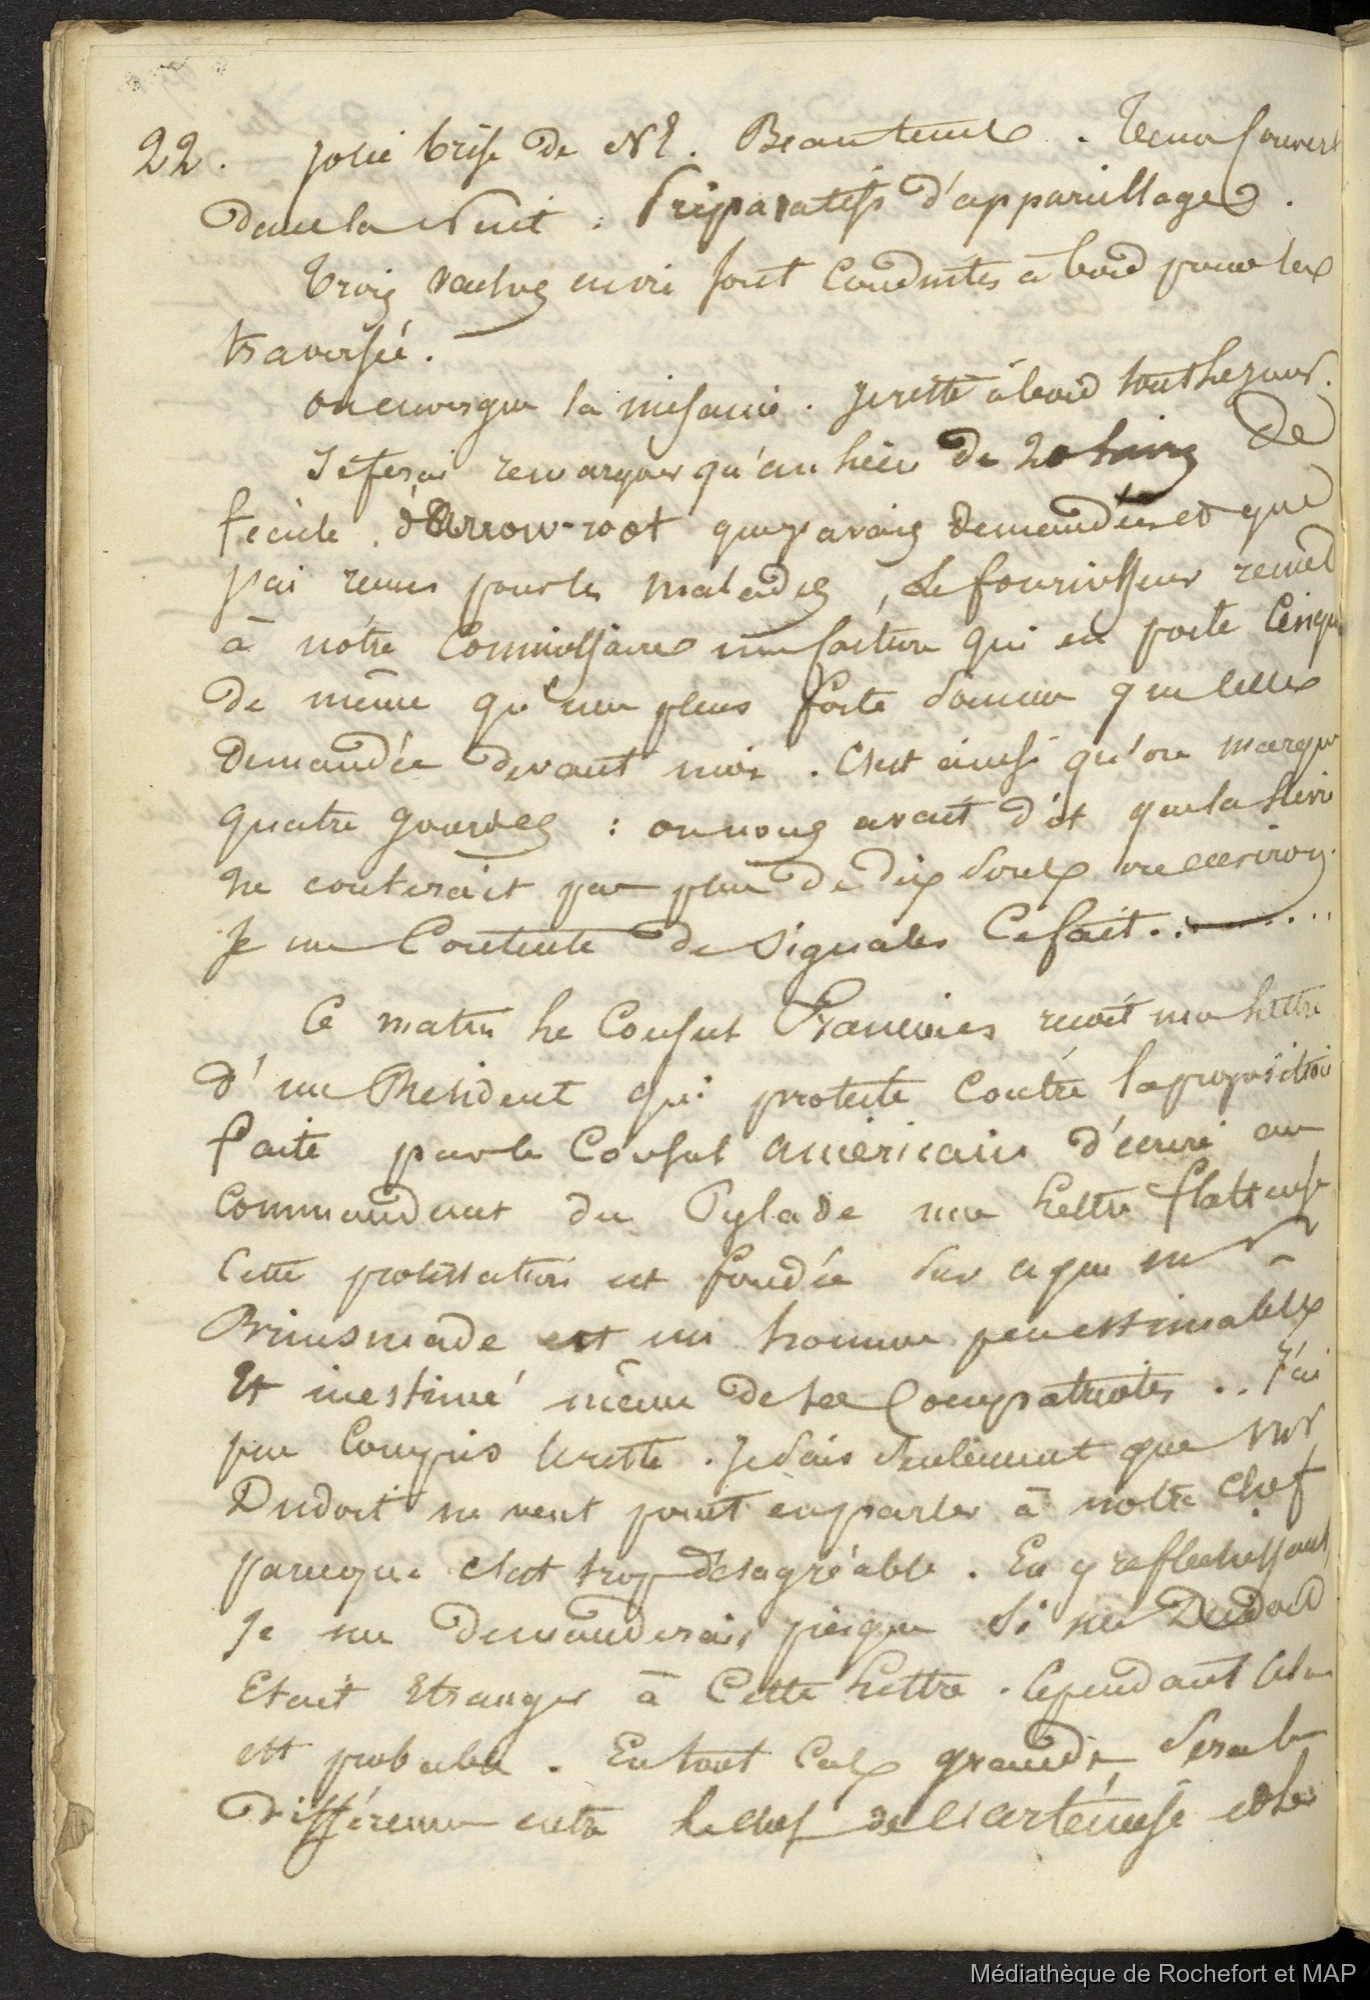 22. Jolie brise de NE. Beau tems. Tems couvert
dans la Nuit : Préparatifs d'appareillage.
Trois vaches en vie sont conduites à bord pour la
traversée.
on envergue la misaine. Je reste à bord tout le jour.
Je ferai remarquer qu'au lieu de 20 livres de
fécule d'Arrow-root que j'avais demandées et que
j'ai reçues pour les malades, le fournisseur remet
à notre Commissaire une facture qui en porte Cinq
de même qu'une plus forte somme que celle
demandée devant moi. C'est ainsi qu'on marque
quatre gourdes : on nous avait dit que la livre
ne couterait pas plus de dix sous ou environ.
Je me Contente de signaler Ce fait........
Ce matin le Consul Français reçoit une lettre
d'un Résident qui proteste Contre la proposition
faite par le Consul américain d'écrire au
Commandant du Pylade une lettre flatteuse
Cette protestation est fondée sur ce que mr
Brinsmade est un homme peu estimable
Et inestimé même de ses Compatriotes .. J'ai
peu Compris le reste. Je sais seulement que Mr
Dudoit ne veut point en parler à notre chef
parceque c'est trop désagréable. En y réfléchissant
Je me demanderais presque si mr Dudoit
Etait Etranger à Cette lettre. Cependant cela
est probable. En tout Cas grande sera la
Différence entre le chef de l'artémise et le
Médiathèque de Rochefort et MAP